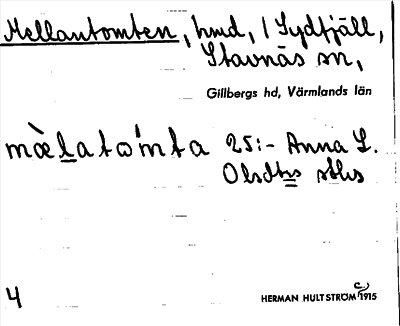 Mellantomten, hmd, i Sydfjäll,
Stavnäs sn,
Gillbergs hd, Värmlands län
mælatωmta 25:- Anna L.
Olsdtrs sths
4
HERMAN HULTSTRÖM c) 1915